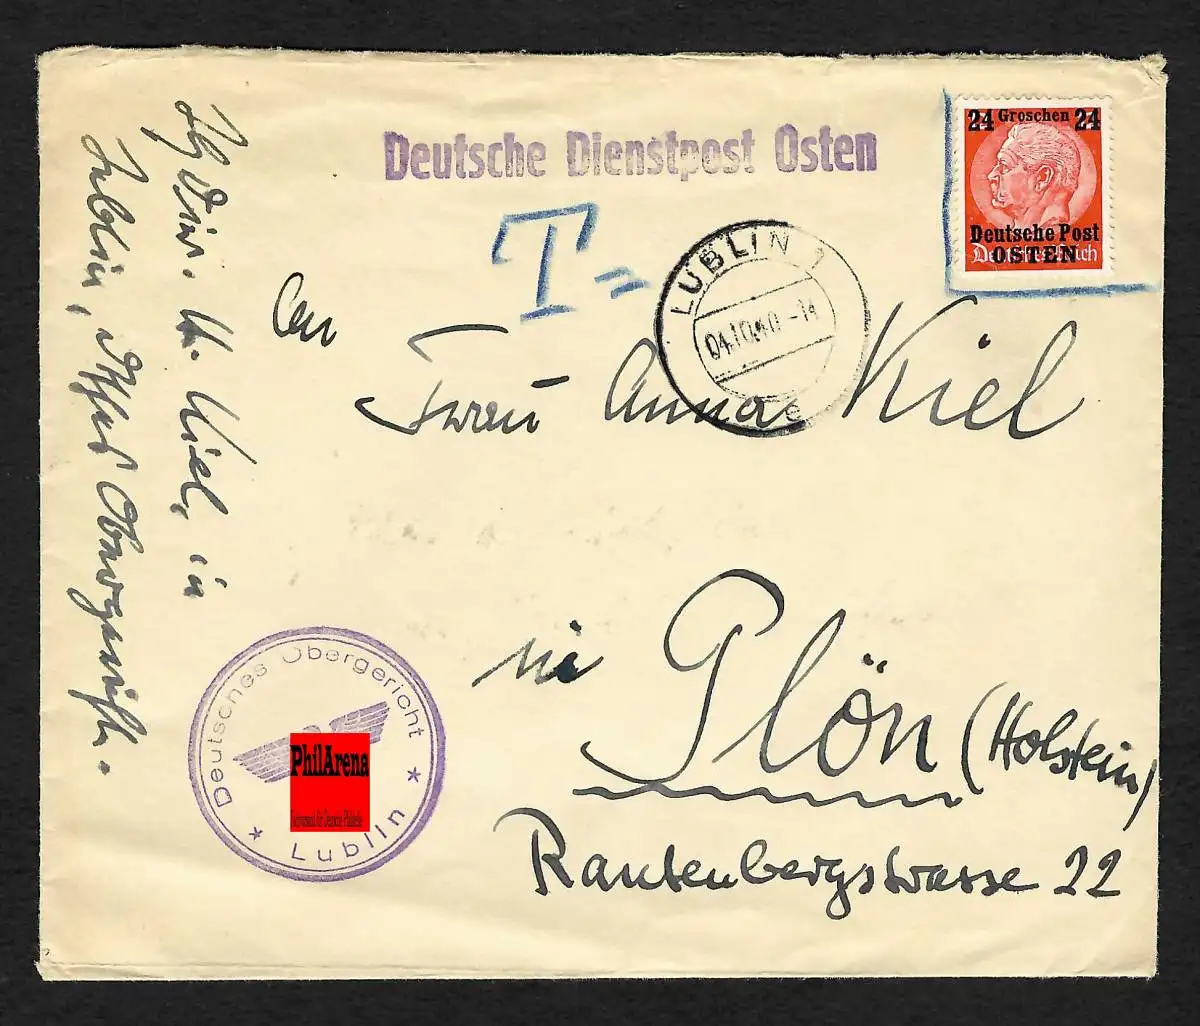 Deutsche Dienstpost Osten
24 Groschen 24
Deutsche Post
OSTEN
Deutsches Reich
T =
LUBLIN 1
04.10.40.-14
e
An
Frau Anna Kiel
in Plön (Holstein)
Rautenbergstrasse 22
U. Kiel, in
Lublin, Obergericht.
Deutsches Obergericht
* Lublin *
PhilArena